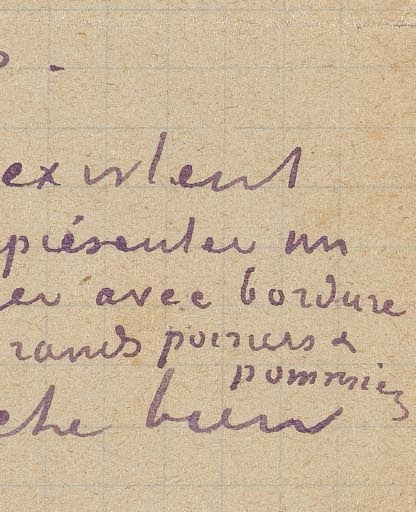 existent
présenter un
er avec bordure
rands poiriers &
pommiers
che bien